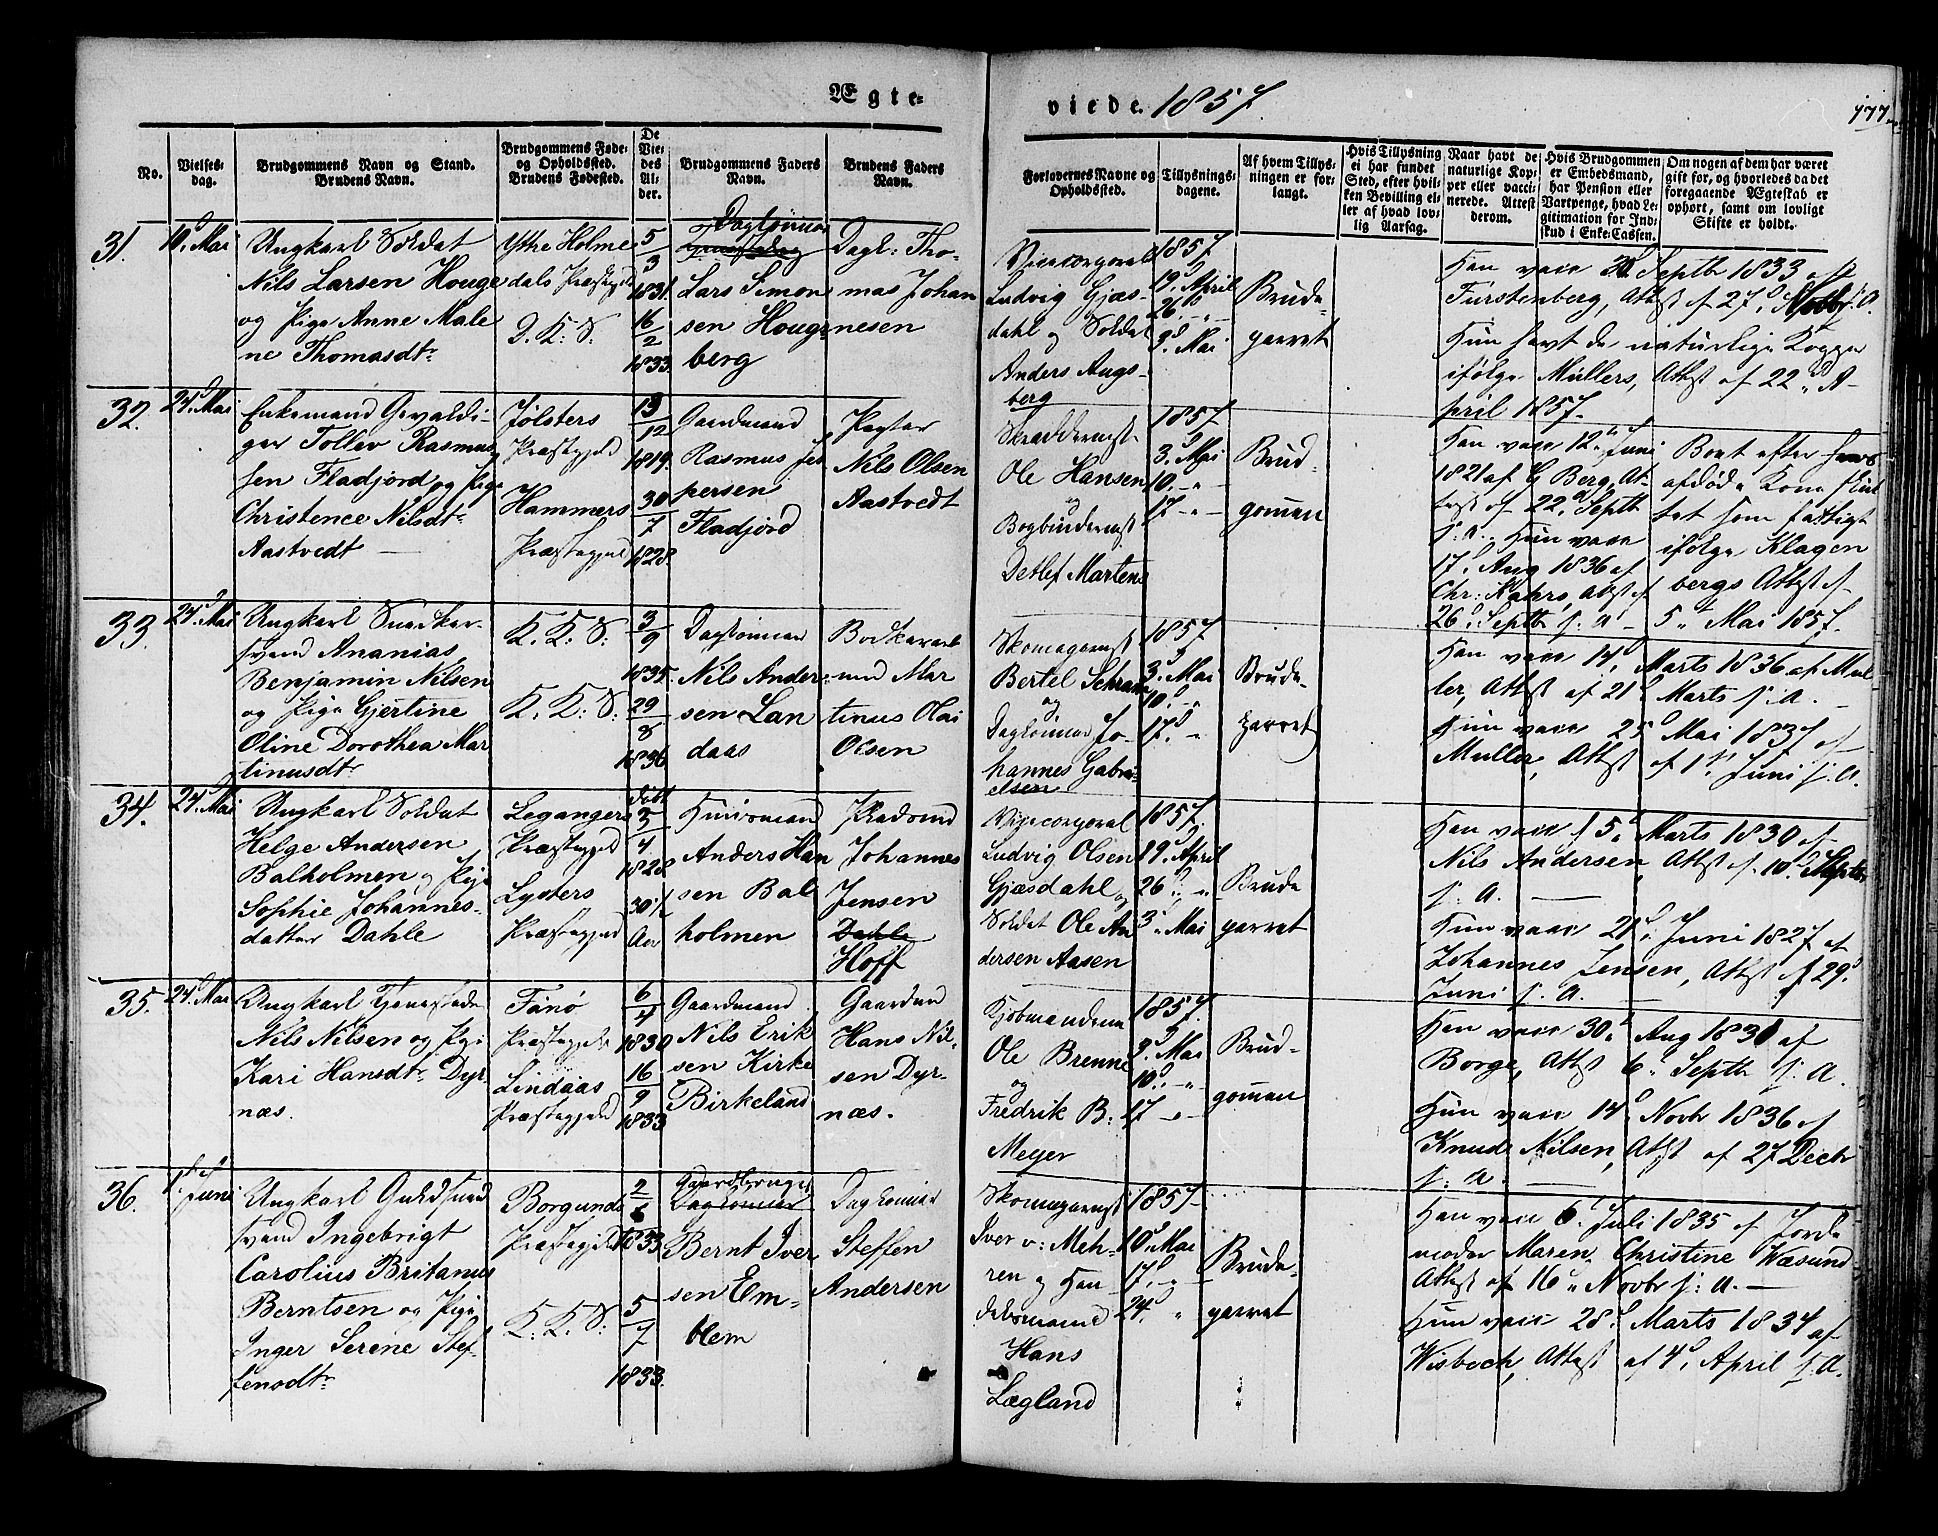 Ægte-
viede 1857.
177
No.
Vielses-
dag.
Brudgommens Navn og Stand.
Brudens Navn.
Brudgommens Føde-
og Opholdssted.
Brudens Fødested.
De
Vie-
des
Al-
der.
Brudgommens Faders
Navn.
Brudens Faders
Navn.
Forlovernes Navne og
Opholdssted.
Tillysnings-
dagene.
Af hvem Tillys-
ningen er for-
langt.
Hvis Tillysning
ei har fundet
Sted, efter hvil-
ken Bevilling el-
ler af hvad lov-
lig Aarsag.
Naar havt de
naturlige Kop-
per eller vacci-
nerede. Attest
derom.
Hvis Brudgommen
er Embedsmand,
har Pension eller
Vartpenge, hvad Le-
gitimation for Ind-
skud i Enke-Cassen.
Om nogen af dem har været
gift før, og hvorledes da det
foregaaende Ægteskab er
ophørt, samt om lovligt
Skifte er holdt.
31.
10. Mai
Ungkarl Soldat
Nils Larsen Houge
og Pige Anne Male
ne Thomasdtr
Ytre Holme
dals Præstegjeld
D. K. S.
5
3
1831.
16
2
1833.
Dagløinner
Lars Simon
sen Houge
berg
Dagl: Tho-
mas Johan
nesen
Vicecorporal
Ludvig Gjæs-
dahl og Soldat
Anders Augs-
berg
1857
19. April
26. "
3. Mai
Brude-
parret
Han vacc 20 Septbr 1833 af
Furstenberg, Attest af 27. Novbr s. A.
Hun havt de naturlige Kopper
ifølge Müllers, Attest af 22. A-
pril 1857.
32.
24. Mai
Enkemand Gevaldi-
ger Tollev Rasmus
sen Fladjord og Pige
Christence Nilsdtr
Aastvedt —
Jølsters
Præstegjeld
Hammers
Præstegjeld
13
12
1819.
30
7
1828.
Gaardmand
Rasmus Jes
persen
Fladjord
Pagter
Nils Olsen
Aastvedt
Skræddermst.
Ole Hansen
og
Bogbindermst
Detlef Martens
1857
3. Mai
10. - " -
17 - " -
Brud-
gomen
Han vacc 12. Juni
1821 af G Berg, At-
test af 22. Septbr
s. a. Hun vacc
17. Aug 1836 af
Chr: Kahrs, Attest af
26. Septbr s: a -
Boet efter hans
afdøde Kone skif
tet som fattigt
ifølge Klagen
bergs Attest af
5. Mai 1857.
33.
24. Mai
Ungkarl Snedker-
svend Ananias
Benjamin Nilsen
og Pige Gjertine
Oline Dorothea Mar
tinusdtr
K. K: S.
K. K: S.
3
9
1835.
29
8
1836
Dagløinner
Nils Ander
sen Lan
daas
Bødkersvend
Mar
tinus Olai
Olsen
Skomagermst
Bertel Schram
og
Dagløinner Jo-
hannes Gabri-
elsen
1857
3. Mai
10. "
17. "
Brude-
parret
Han vacc 14. Marts 1836 af Mul
ler, Attest af 21. Marts s. a. —
Hun vacc 25 Mai 1837 af
Muller, Attest af 1ste Juni s. A.
34.
24. Mai
Ungkarl Soldat
Helge Andersen
Balholmen og Pige
Sophie Johannes-
datter Dahle
Legangers
Præstegjeld
Lysters
Præstegjeld
døbt
5
4
1828
30½
Aar
Huusmand
Anders Han
sen Bal
holmen
Johannes
Jensen
Dahle
Hoff
Vicecorporal
Ludvig Olsen
Gjæsdahl og
Soldat Ole An
dersen Aasen
1857.
19. April
26. "
3. Mai
Brude
parret
Han vacc 15. Marts 1830 af
Nils Andersen, Attest af 10. Septbr
s. a. —
Hun vacc 21. Juni 1827 af
Johannes Jensen, Attest af 29.
Juni s. a. —
35.
24. Mai
Ungkarl
Nils Nilsen og Pige
Kari Hansdtr Dyr
næs.
Fanø
Præstegjeld
Lindaas
Præstegjeld
6
4
1830
16
9
1833
Gaardmand
Nils Erik
sen Kirke
Birkeland
Gaardmd
Hans Nil-
sen Dyr-
næs.
Kjøbmændene
Ole Brenne
og
Fredrik B:
Meyer
1857.
3. Mai
10. - "
17 - " -
Brud-
gomen
Han vacc 30. Aug 1830 af
Borge, Attest 6. Septbr s. A.
Hun vacc 14. Novbr 1836 af
Knud Nilsen, Attest af 27 Decbr
s. a. —
36.
1ste Juni
Ungkarl Guldsmed
svend Ingebrigt
Carolius Britanus
Berntsen og Pige
Inger Serene Stef-
fensdtr
Borgunds
Præstegjeld
K: K. S:
2
6
1833.
5
7
1833.
Gaardbruger
Dagløinner
Bernt Iver
sen Elm-
blem
Dagløinner
Steffen
Andersen
Skomagermst
Iver v: Meh-
ren og Han
delsmand
Hans
Lægland
1857
10. Mai
17. - " -
24. "
Brude-
parret
Han vacc 6. Juli 1835 af Jorde
moder Maren Christine Wæsund
Attest af 16. Novbr s: a. —
Hun vacc 28. Marts 1834 af
Wisbech, Attest af 4. April s. A.